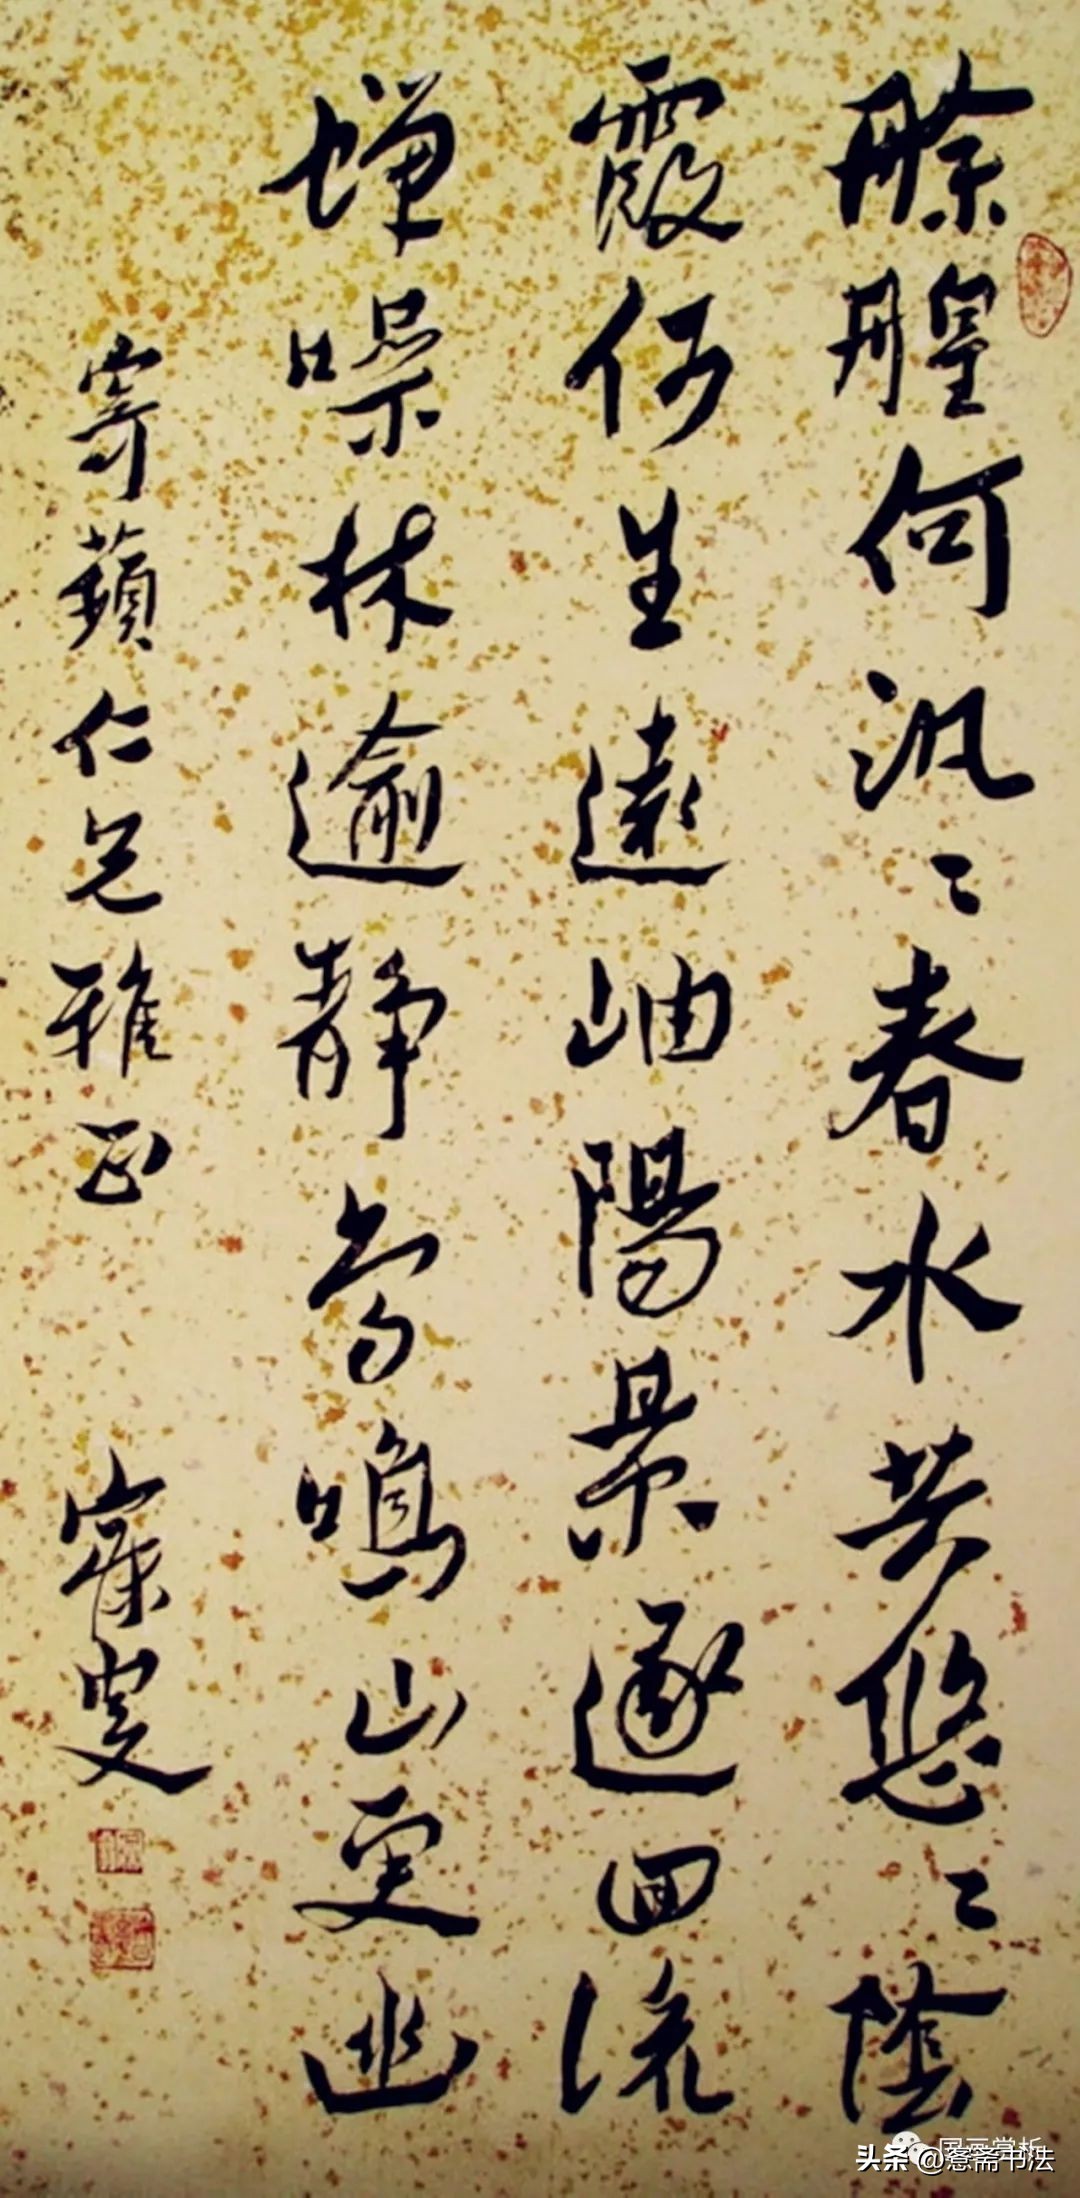 艅艎何汎〻春水共悠〻陰
霞何生遠岫陽景逐回流
蟬噪林逾靜鳥鳴山更幽
寄蘋仁兄雅正 寐叟
头条 @斋书法